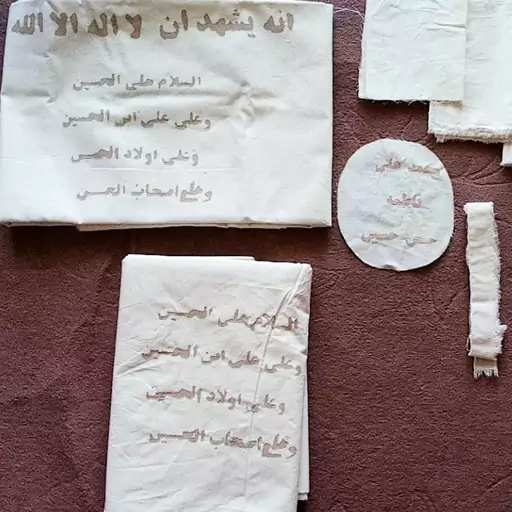 انه يشهد ان لا اله الا الله
السلام على الحسين
وعلى على ابن الحسين
وعلى اولاد الحسن
وعلى اصحاب الحسن
محمد على
فاطمه
حسن حسين
السلام على الحسين
وعلى على ابن الحسين
وعلى اولاد الحسين
وعلى اصحاب الحسين